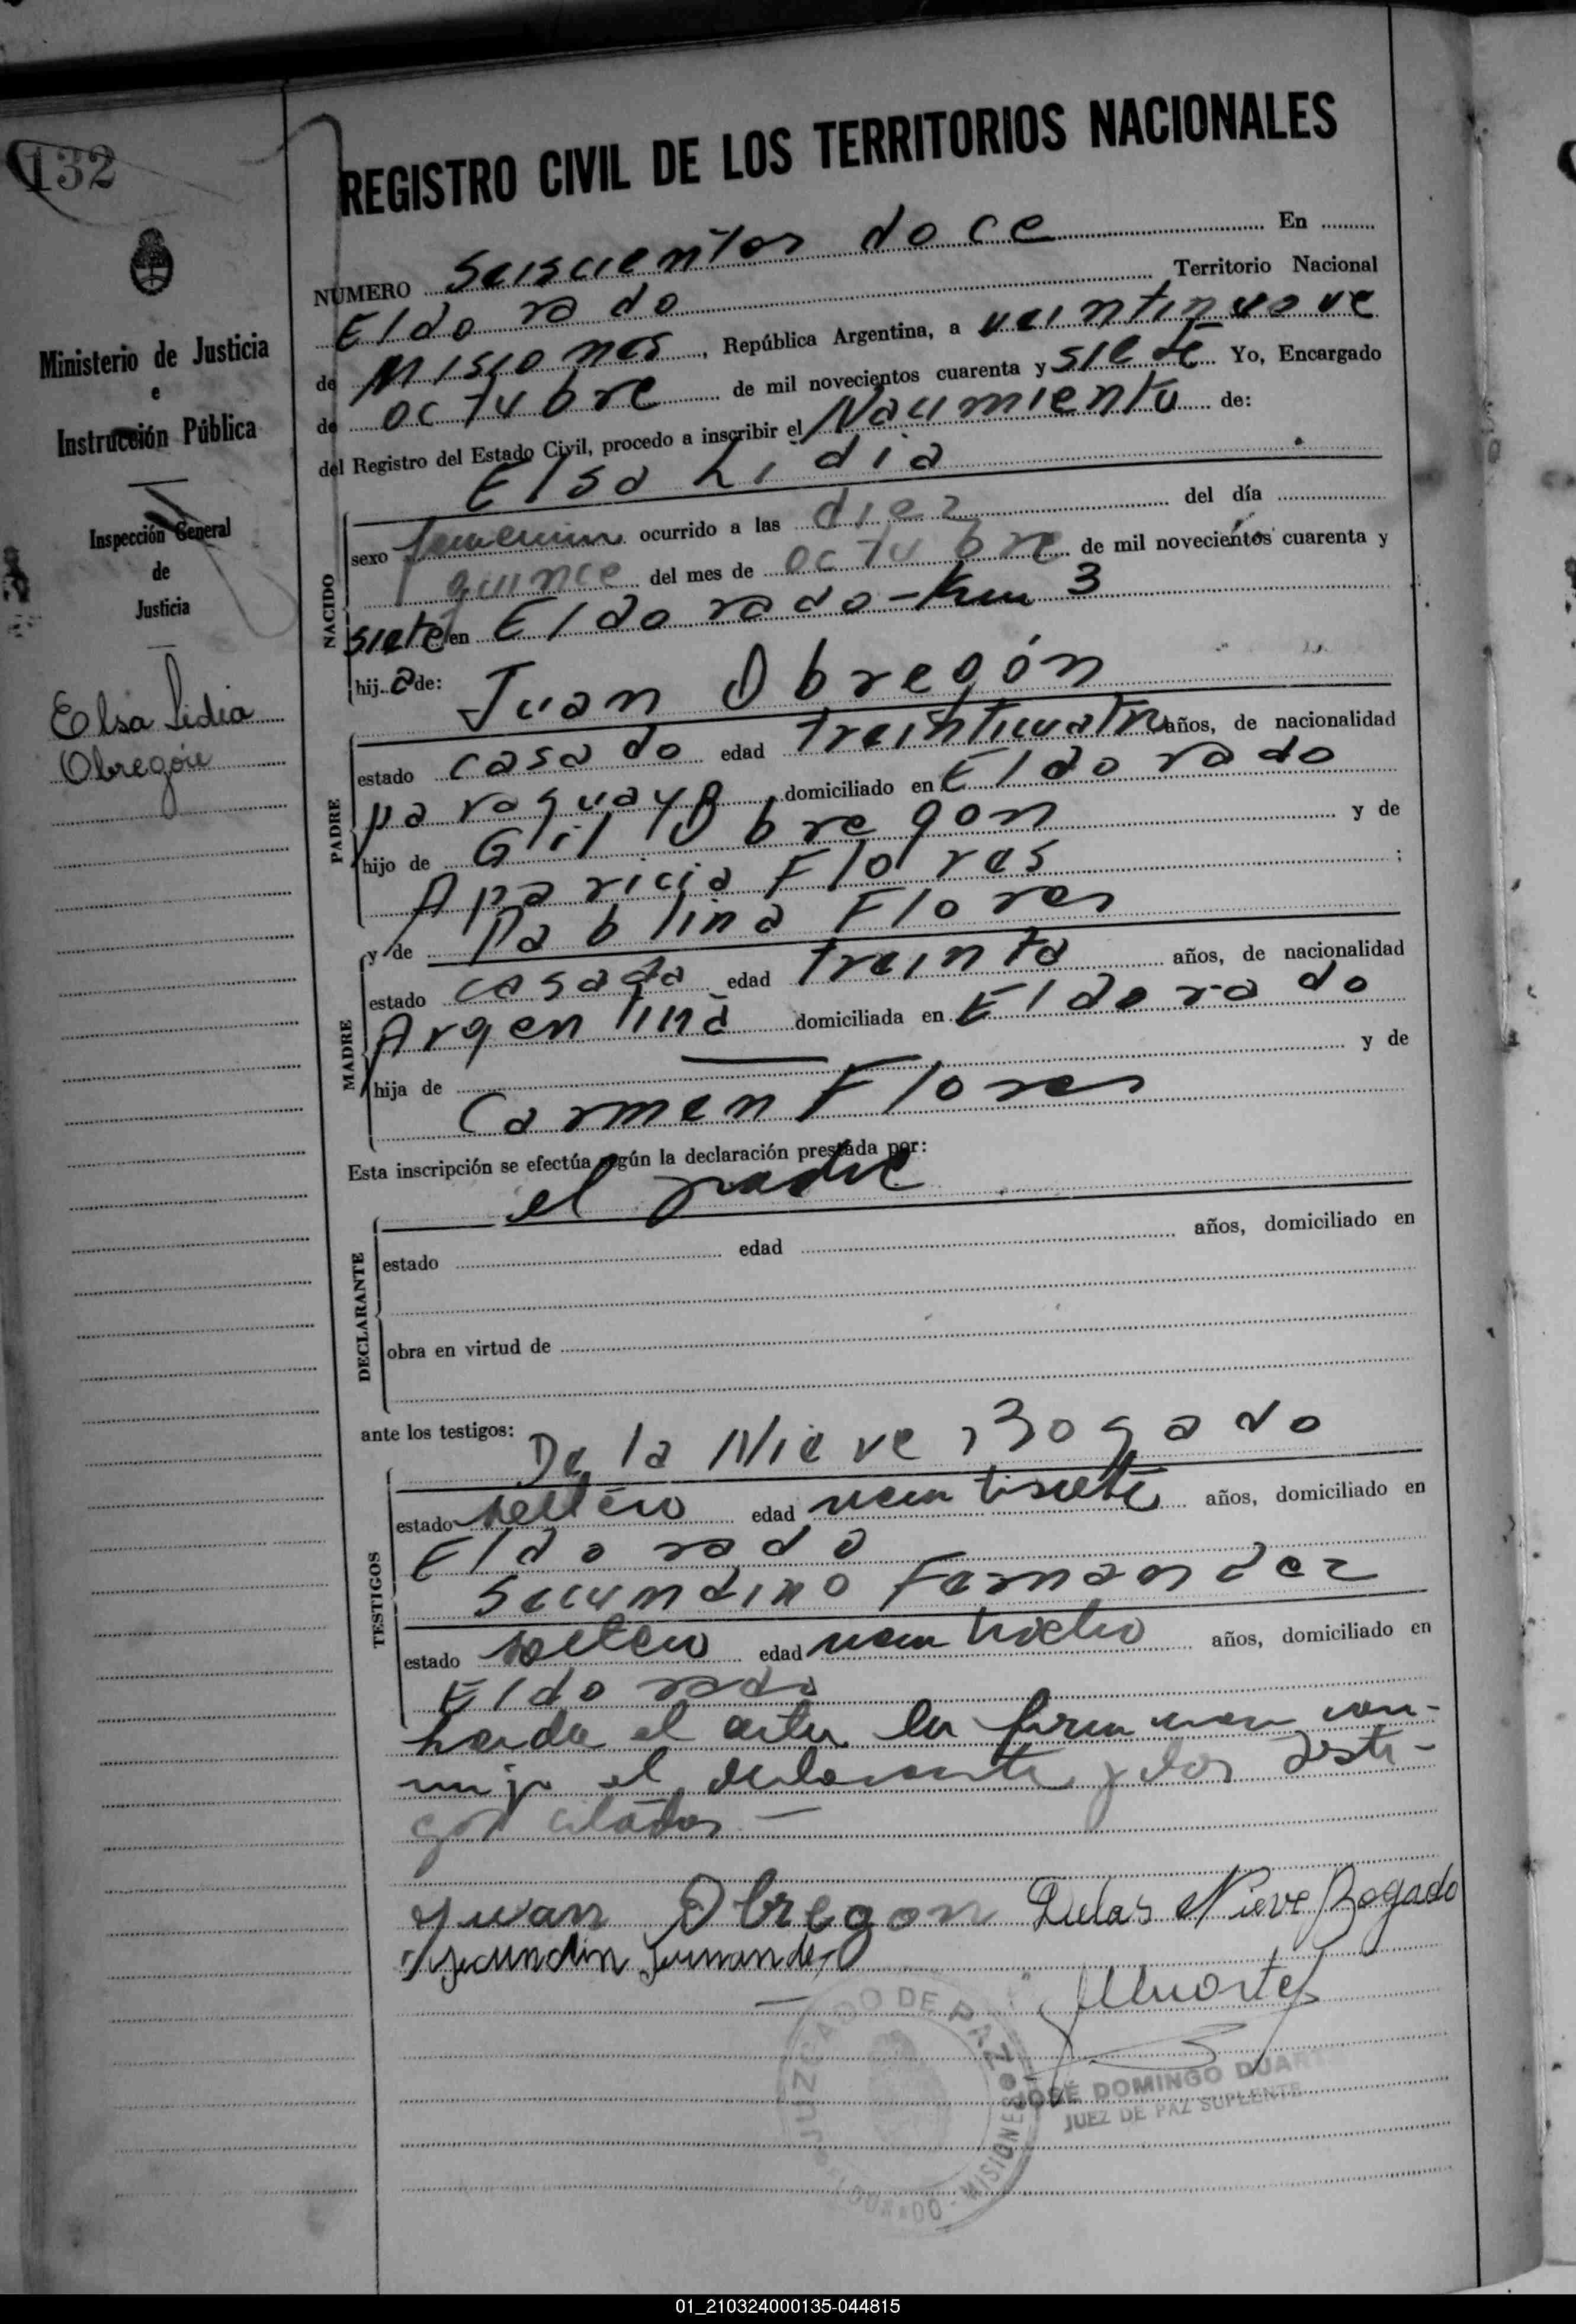 132
Ministerio de Justicia
e
Instrucción Pública
Inspección General
de
Justicia
Elsa Lidia
Obregón
REGISTRO CIVIL DE LOS TERRITORIOS NACIONALES
NUMERO Seiscientos doce En
Eldorado Territorio Nacional
de Misiones, República Argentina, a veintinueve
de octubre de mil novecientos cuarenta y siete Yo, Encargado
del Registro del Estado Civil, procedo a inscribir el Nacimiento de:
Elsa Lidia
NACIDO
sexo femenino ocurrido a las diez del día
quince del mes de octubre de mil novecientos cuarenta y
siete en Eldorado - Km 3
hija de:
Juan Obregón
PADRE
estado casado edad treinticuatro años, de nacionalidad
paraguaya, domiciliado en Eldorado
hijo de Gil Obregon y de
Aparicia Flores;
y de Pablina Flores
MADRE
estado casada edad treinta años, de nacionalidad
Argentina domiciliada en Eldorado
hija de — y de
Carmen Flores
Esta inscripción se efectúa según la declaración prestada por:
el padre
DECLARANTE
estado edad años, domiciliado en
obra en virtud de
ante los testigos:
De la Nieve Bogado
TESTIGOS
estado soltero edad veintisiete años, domiciliado en
Eldorado
Secundino Fernandez
estado soltero edad veintiocho años, domiciliado en
Eldorado
Leida el acta la firman con-
migo el declarante y los testi-
gos citados —
Juan Obregon Delas Nieve Bogado
Secundin Fernandez
JDuarte
JUZGADO DE PAZ
ELDORADO - MISIONES
JOSÉ DOMINGO DUARTE
JUEZ DE PAZ SUPLENTE
01_210324000135-044815